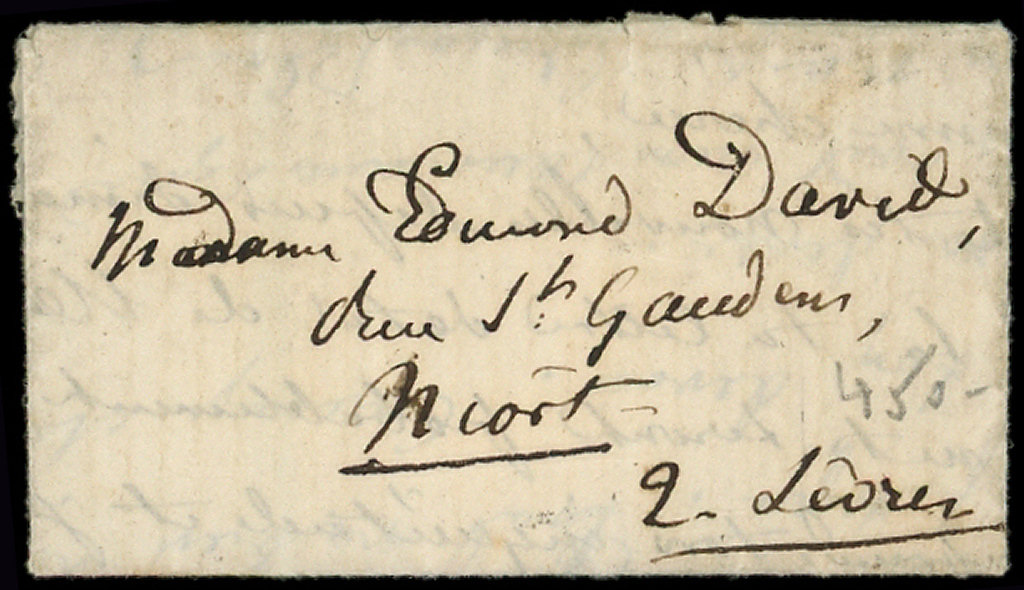 Madame Edmond David,
rue St. Gaudens,
Niort
450-
2. Sèvres